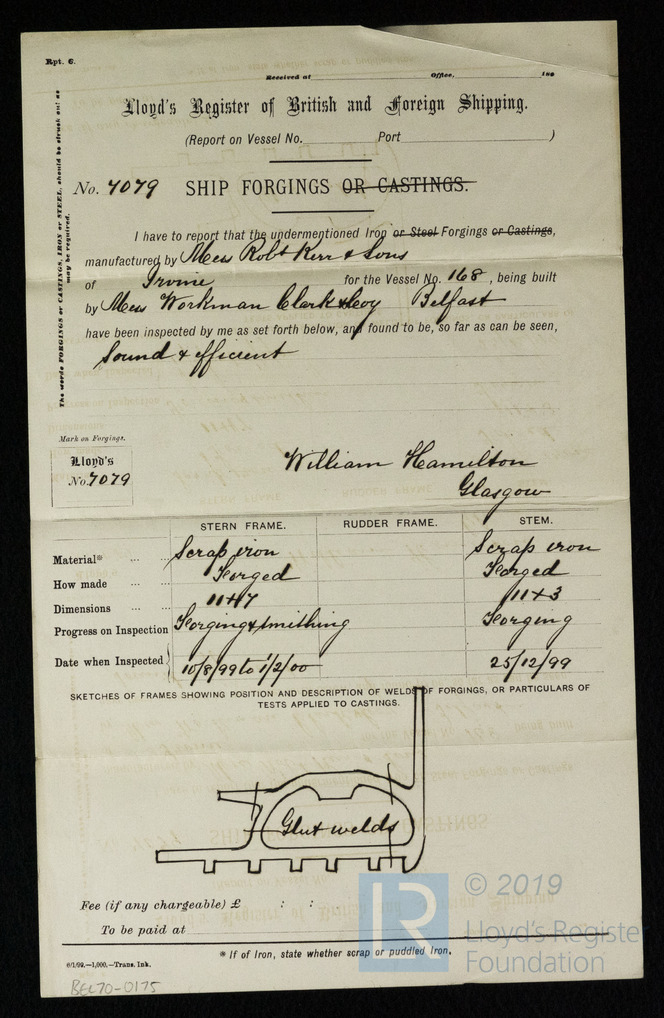 Rpt. 6.
Received at Office, 188
Lloyd's Register of British and Foreign Shipping.
(Report on Vessel No. Port )
No. 7079 SHIP FORGINGS OR CASTINGS.
The words FORGINGS or CASTINGS, IRON or STEEL, should be struck out as may be required.
I have to report that the undermentioned Iron or Steel Forgings or Castings,
manufactured by Mess Robt Kerr & Sons
of Irvine for the Vessel No. 168, being built
by Mess Workman Clark & Coy Belfast
have been inspected by me as set forth below, and found to be, so far as can be seen,
Sound & efficient
Mark on Forgings.
Lloyd's
No. 7079
William Hamilton
Glasgow
STERN FRAME. RUDDER FRAME. STEM.
Material* Scrap iron Scrap iron
How made Forged Forged
Dimensions 11+7 11+3
Progress on Inspection Forging & smithing Forging
Date when Inspected 10/8/99 to 1/2/00 25/12/99
SKETCHES OF FRAMES SHOWING POSITION AND DESCRIPTION OF WELDS OF FORGINGS, OR PARTICULARS OF
TESTS APPLIED TO CASTINGS.
Glut welds
Fee (if any chargeable) £ : :
To be paid at
* If of Iron, state whether scrap or puddled iron.
6/1/99.—1,000.—Trans. Ink.
BEL70-0175
LR
© 2019
Lloyd's Register
Foundation